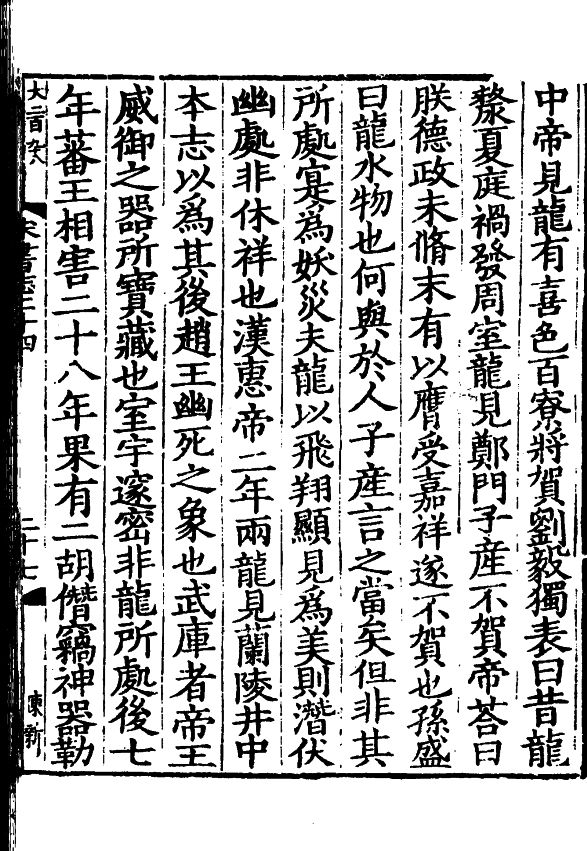 中帝見龍有喜色百寮將賀劉毅獨表曰昔龍
漦夏庭禍發周室龍見鄭門子産不賀帝荅曰
朕德政未脩未有以膺受嘉祥遂不賀也孫盛
曰龍水物也何與於人子産言之當矣但非其
所處寔爲妖災夫龍以飛翔顯見爲美則潛伏
幽處非休祥也漢惠帝二年兩龍見蘭陵井中
本志以爲其後趙王幽死之象也武庫者帝王
威御之器所寶藏也室宇邃密非龍所處後七
年蕃王相害二十八年果有二胡僭竊神器勒
宋書志二十四
二十七
陳新